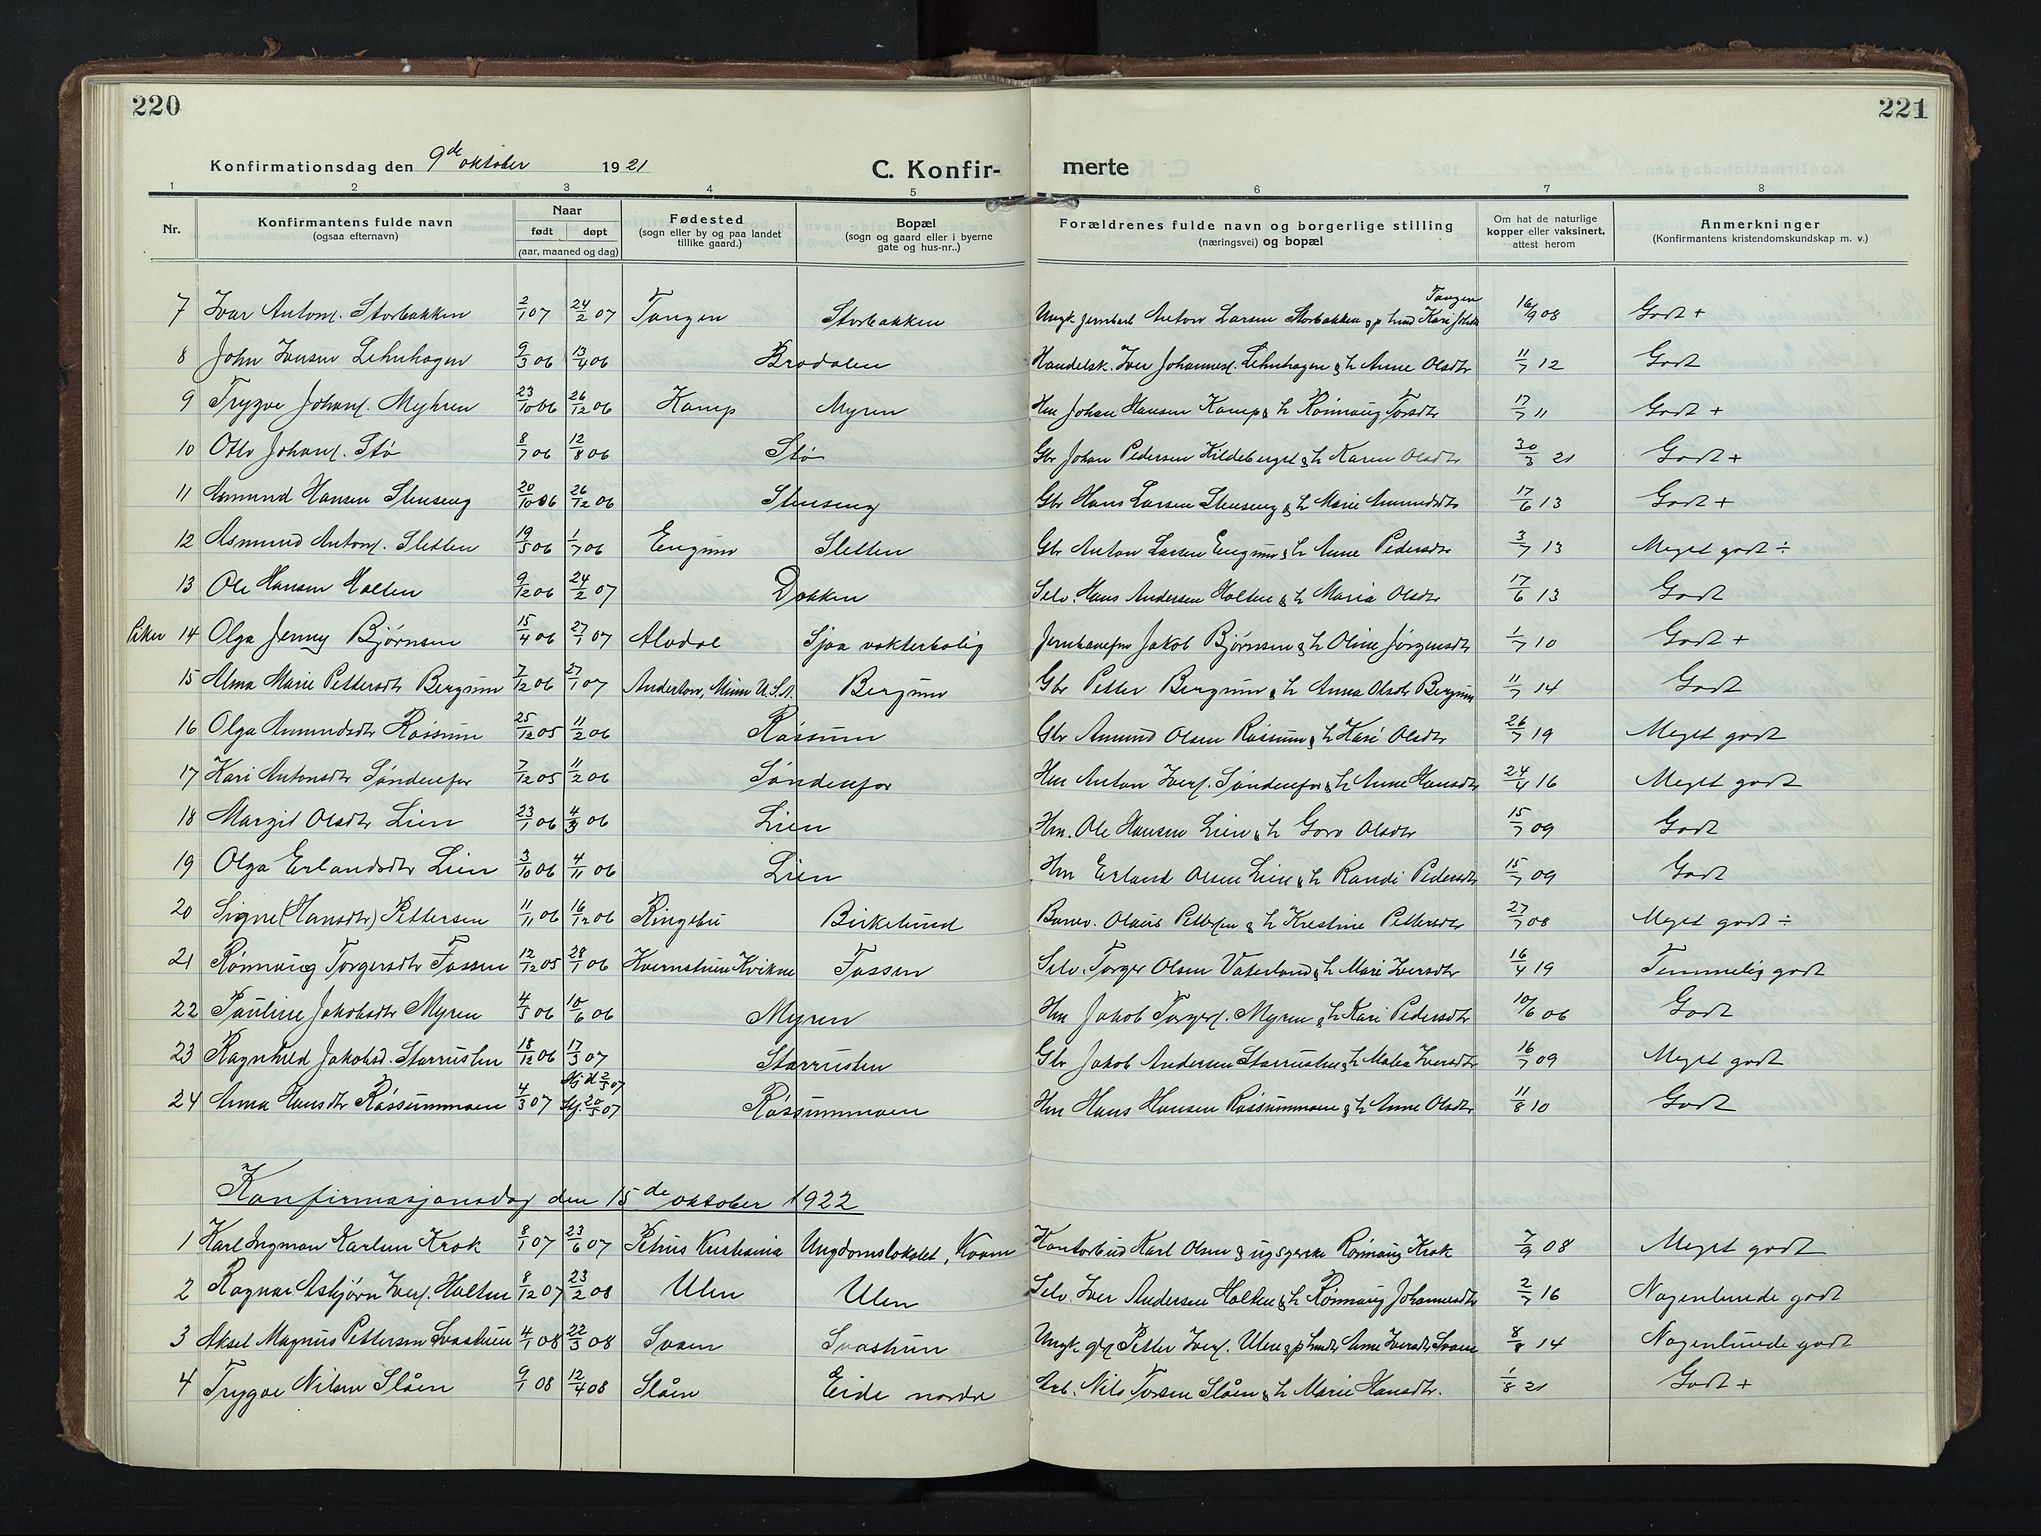 220
221
Konfirmationsdag den 9de oktober 1921
C. Konfir-
merte
1 2 3 4 5 6 7 8
Nr. Konfirmantens fulde navn (ogsaa efternavn) Naar født døpt (aar, maaned og dag) Fødested (sogn eller by og paa landet tillike gaard.) Bopæl (sogn og gaard eller i byerne gate og hus-nr..) Forældrenes fulde navn og borgerlige stilling (næringsvei) og bopæl Om hat de naturlige kopper eller vaksinert, attest herom Anmerkninger (Konfirmantens kristendomskundskap m. v.)
7 Ivar Antons. Storbakken 2/1 07 24/2 07 Tangen Storbakken Ungk. jernbarb Anton Larsen Storbakken Tangen 16/9 08 Godt +
8 John Iversen Lehnhagen 9/3 06 13/4 06 Brodalen Handelsk. Iver Johannes. Lehnhagen & h Anne Olsdtr 11/7 12 Godt
9 Trygve Johans. Myhren 23/10 06 26/12 06 Kamp Myren Hm Johan Hansen Kamp & h Rønnaug Torsdtr 17/7 11 Godt +
10 Otto Johans. Stø 8/7 06 12/8 06 Stø Gbr Johan Pedersen Kildeberget & h Karen Olsdtr 30/3 21 Godt +
11 Amund Hansen Stenseng 20/10 06 26/12 06 Stenseng Gbr Hans Larsen Stenseng & h Marie Amundsdtr 17/6 13 Godt +
12 Asmund Antons. Sletten 19/5 06 1/7 06 Engum Sletten Gbr Anton Larsen Engum & h Anne Pedersdtr 3/7 13 Meget godt ÷
13 Ole Hansen Holten 9/12 06 24/2 07 Dokken Selv. Hans Andersen Holten & h Maria Olsdtr 17/6 13 Godt
Piker 14 Olga Jenny Bjørnsen 15/4 06 27/1 07 Alvdal Sjoa vokterbolig Jernbanefm Jakob Bjørnsen & h Oline Jørgensdtr 1/7 10 Godt +
15 Alma Marie Pettersdtr Bergum 7/12 06 27/1 07 Anderton, Minn U.S.A. Bergum Gbr Petter Bergum & h Anna Olsdtr Bergum 11/7 14 Godt
16 Olga Amundsdtr Råssum 25/12 05 11/2 06 Råssum Gbr Amund Olsen Råssum & h Kari Olsdtr 26/7 19 Meget godt
17 Kari Antonsdtr Søndenfor 7/12 05 11/2 06 Søndenfor Hm Anton Ivers. Søndenfor & h Anne Hansdtr 24/4 16 Meget godt
18 Margit Olsdtr Lien 23/1 06 4/3 06 Lien Hm. Ole Hansen Lien & h Goro Olsdtr 15/7 09 Godt
19 Olga Erlandsdtr Lien 3/10 06 4/11 06 Lien Hm Erland Olsen Lien & h Randi Pedersdtr 15/7 09 Godt
20 Signe (Hansdtr) Pettersen 11/11 06 16/12 06 Ringebu Birkelund Banev. Olaus Pettersen & h Krestine Pettersdtr 27/7 08 Meget godt ÷
21 Rønnaug Torgersdtr Fossen 12/12 05 28/1 06 Kvernstuen Kvikne Fossen Selv. Torger Olsen Vaterland & h Mari Iversdtr 16/4 19 Temmelig godt
22 Pauline Jakobsdtr Myren 4/5 06 10/6 06 Myren Hm Jakob Torgers. Myren & h Kari Pedersdtr 10/6 06 Godt
23 Ragnhild Jakobsd. Starrusten 18/12 06 17/3 07 Starrusten Gbr Jakob Andersen Starrusten & h Malea Iversdtr 16/7 09 Meget godt
24 Anna Hansdtr Råssummoen 4/3 07 Hj. d. 2/5 07 St. 20/5 07 Råssummoen Hm Hans Hansen Råssummoen & h Anne Olsdtr 11/8 10 Godt
Konfirmasjonsdag den 15de oktober 1922
1 Karl Ingman Karlsen Krok 8/1 07 23/6 07 Petrus Kristiania Ungdomslokalet, Kvam Kontorbud Karl Olsen & ugpike Rønnaug Krok 7/9 08 Meget godt
2 Ragnar Asbjørn Ivers. Holten 8/12 07 23/2 08 Ulen Ulen Selv. Iver Andersen Holten & h Rønnaug Johannesdtr 2/7 16 Nogenlunde godt
3 Aksel Magnus Pettersen Svastuen 4/1 08 22/3 08 Svaen Svastuen Ungk. Petter Ivers. Ulen & Anne Iversdtr Svaen 8/8 14 Nogenlunde godt
4 Trygve Nilsen Slåen 9/1 08 12/4 08 Slåen Eide nordre Arb. Nils Torsen Slåen & h Marie Hansdtr. 1/8 21 Godt +